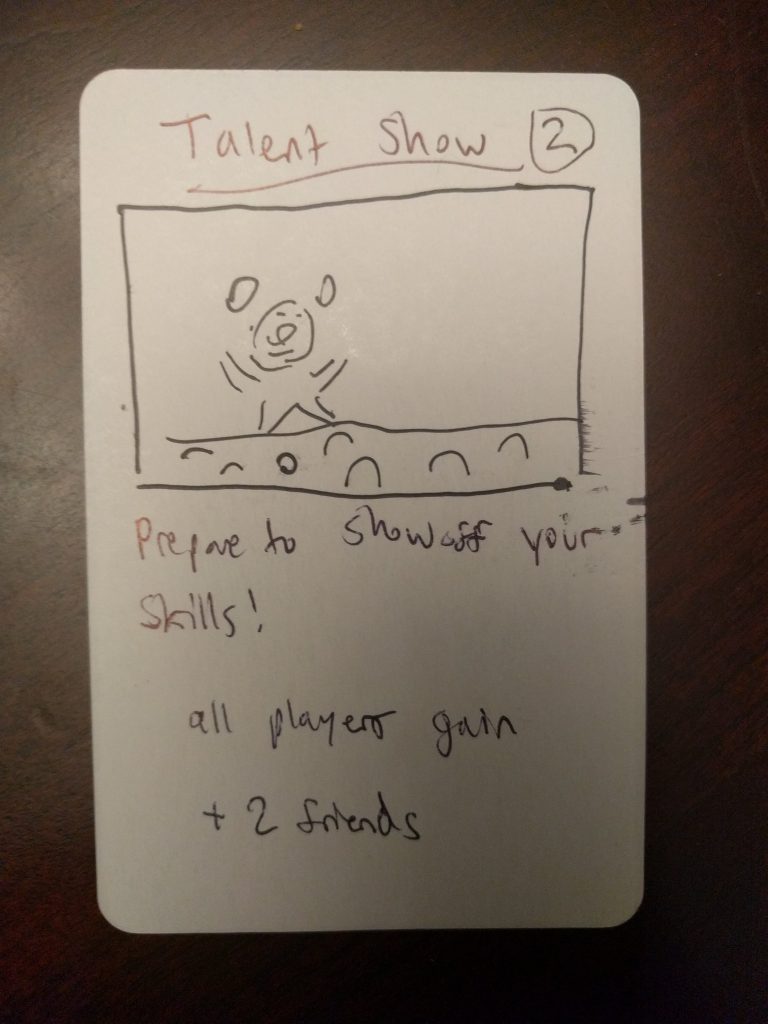 Talent Show 2
Prepare to showoff your
Skills!
all players gain
+ 2 friends